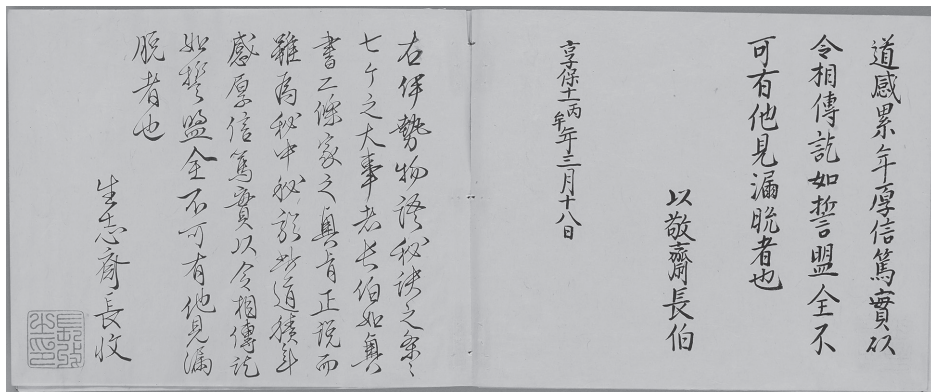 道感累年厚信篤實以
令相傳訖如誓盟全不
可有他見漏脱者也
以敬齋長伯
享保十一丙午年三月十八日
右伊勢物語秘訣之条々
七ケ之大事者長伯如奥
書二條家之奥旨正説而
雖為秘中秘於斯道積年
感厚信篤實以令相傳訖
如誓盟全不可有他見漏
脱者也
生志齋長收